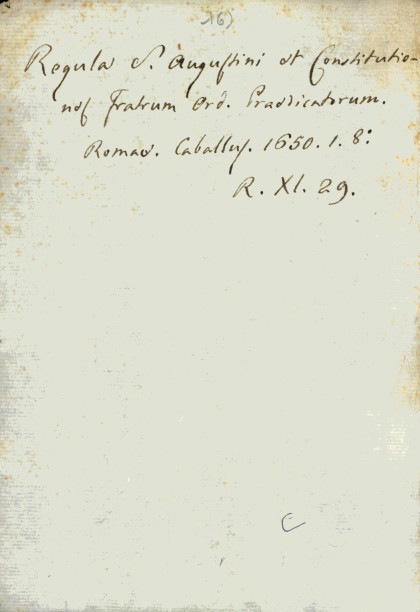 16)
Regula S. Augustini et Constitutio-
nes Fratrum Ord. Praedicatorum.
Romae. Caballus. 1650. 1. 8:
R. XI. 29.
C